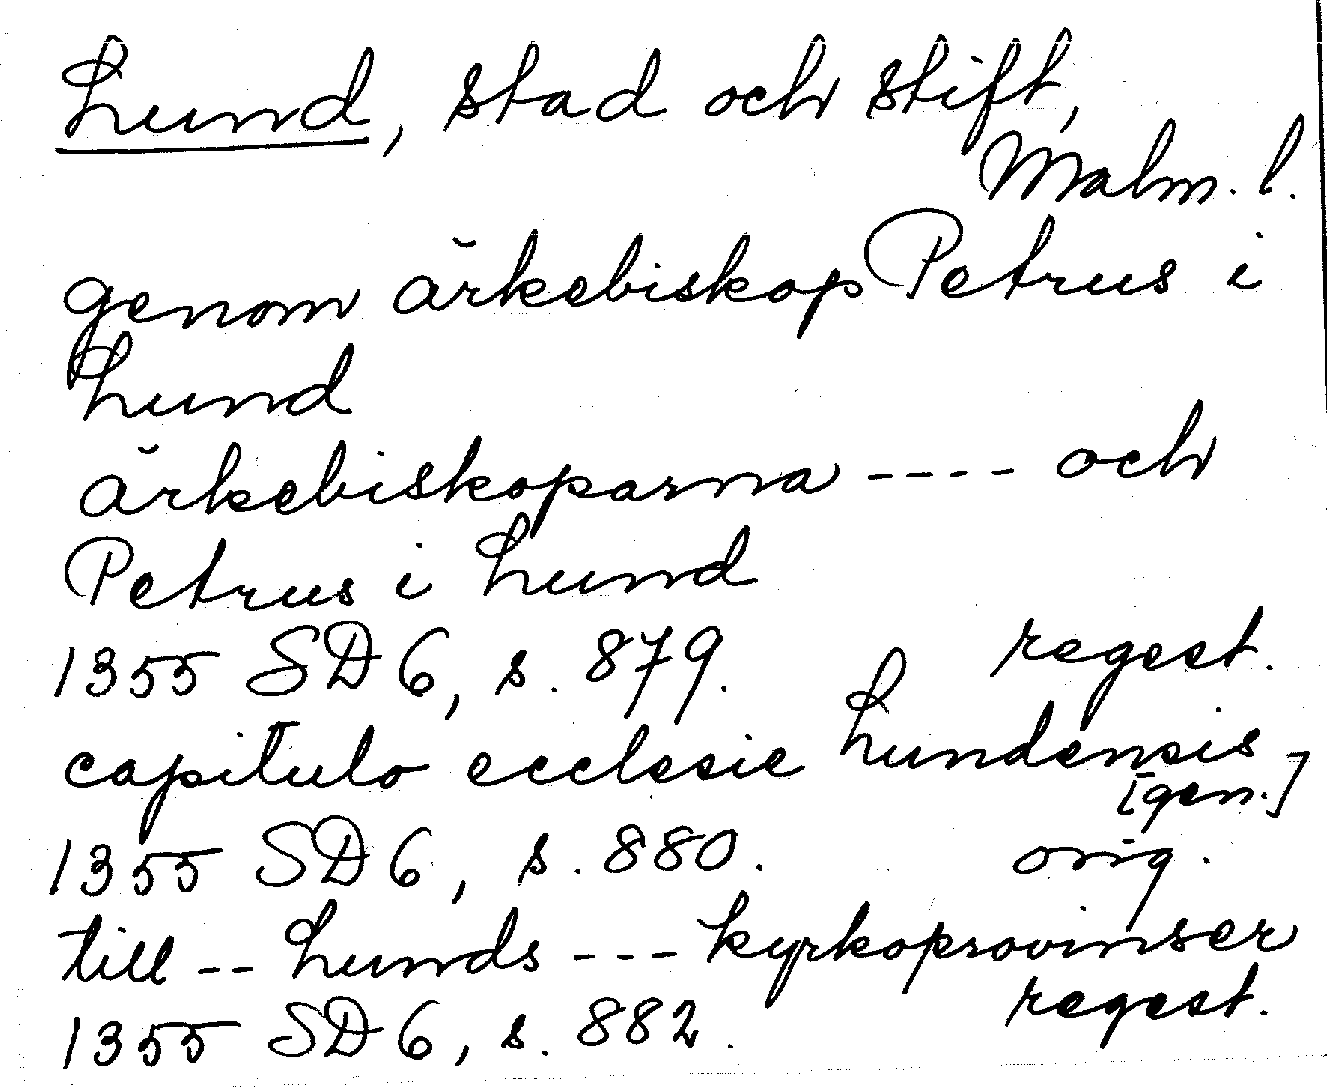 Lund, stad och stift,
Malm. l.
genom ärkebiskop Petrus i
Lund
ärkebiskoparna ---- och
Petrus i Lund
1355 SD 6, s. 879. regest.
capitulo ecclesie Lundensis
[gen.]
1355 SD 6, s. 880. orig.
till -- Lunds --- kyrkoprovinser
1355 SD 6, s. 882. regest.